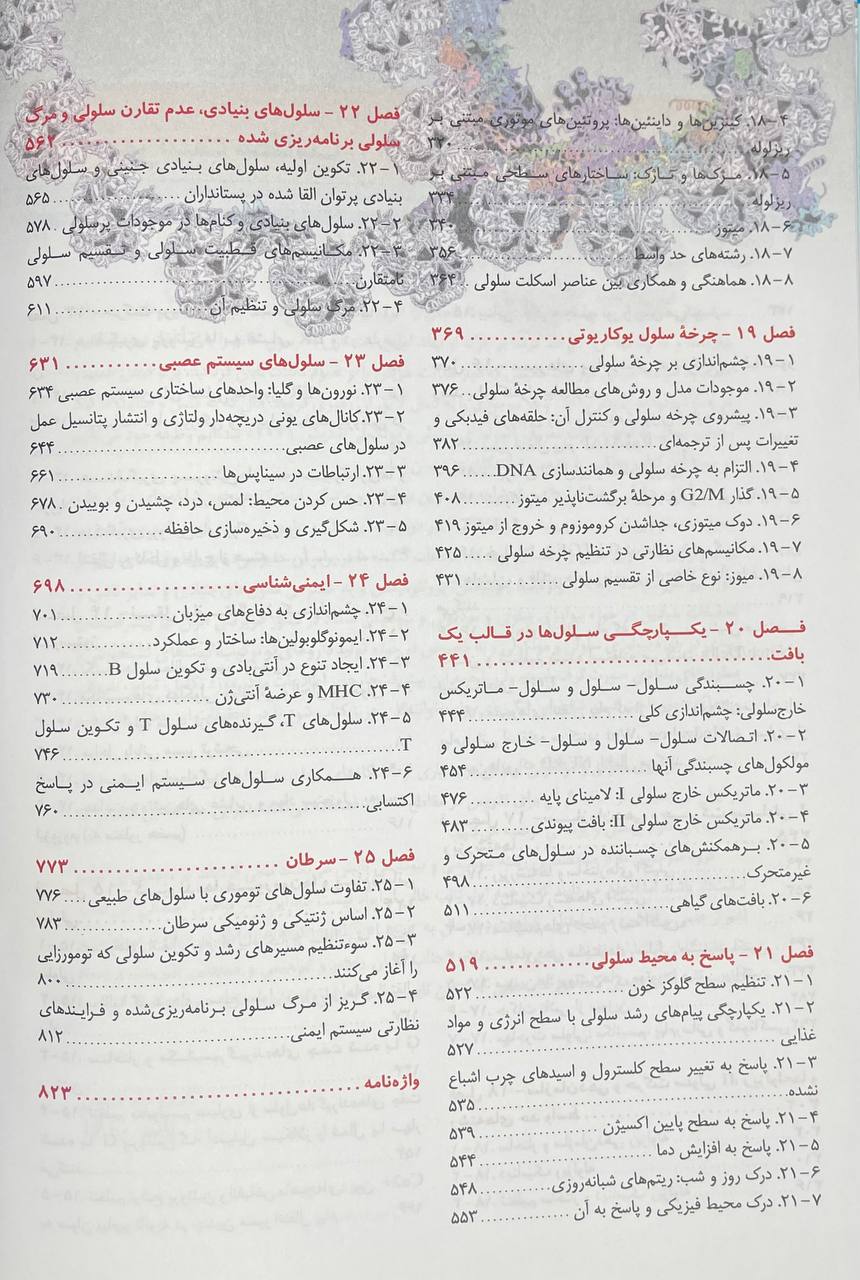 ۱۸-۴. کینزین‌ها و داینئین‌ها: پروتئین‌های موتوری مبتنی بر
ریزلوله ............ ۳۲۰
۱۸-۵. مژک‌ها و تاژک: ساختارهای سطحی مبتنی بر
ریزلوله ............ ۳۳۴
۱۸-۶. میتوز ............ ۳۴۰
۱۸-۷. رشته‌های حد واسط ............ ۳۵۶
۱۸-۸. هماهنگی و همکاری بین عناصر اسکلت سلولی .... ۳۶۴
فصل ۱۹ - چرخهٔ سلول یوکاریوتی ............ ۳۶۹
۱۹-۱. چشم‌اندازی بر چرخهٔ سلولی ............ ۳۷۰
۱۹-۲. موجودات مدل و روش‌های مطالعه چرخهٔ سلولی .. ۳۷۶
۱۹-۳. پیشروی چرخه سلولی و کنترل آن: حلقه‌های فیدبکی و
تغییرات پس از ترجمه‌ای ............ ۳۸۲
۱۹-۴. التزام به چرخه سلولی و همانندسازی DNA ...... ۳۹۶
۱۹-۵. گذار G2/M و مرحلهٔ برگشت‌ناپذیر میتوز .......... ۴۰۸
۱۹-۶. دوک میتوزی، جداشدن کروموزوم و خروج از میتوز ۴۱۹
۱۹-۷. مکانیسم‌های نظارتی در تنظیم چرخه سلولی ..... ۴۲۵
۱۹-۸. میوز: نوع خاصی از تقسیم سلولی ............ ۴۳۱
فصل ۲۰ - یکپارچگی سلول‌ها در قالب یک
بافت ............ ۴۴۱
۲۰-۱. چسبندگی سلول- سلول و سلول- ماتریکس
خارج‌سلولی: چشم‌اندازی کلی ............ ۴۴۴
۲۰-۲. اتصالات سلول- سلول و سلول- خارج سلولی و
مولکول‌های چسبندگی آنها ............ ۴۵۴
۲۰-۳. ماتریکس خارج سلولی I: لامینای پایه .......... ۴۷۶
۲۰-۴. ماتریکس خارج سلولی II: بافت پیوندی .......... ۴۸۳
۲۰-۵. برهمکنش‌های چسباننده در سلول‌های متحرک و
غیرمتحرک ............ ۴۹۸
۲۰-۶. بافت‌های گیاهی ............ ۵۱۱
فصل ۲۱ - پاسخ به محیط سلولی ............ ۵۱۹
۲۱-۱. تنظیم سطح گلوکز خون ............ ۵۲۲
۲۱-۲. یکپارچگی پیام‌های رشد سلولی با سطح انرژی و مواد
غذایی ............ ۵۲۷
۲۱-۳. پاسخ به تغییر سطح کلسترول و اسیدهای چرب اشباع
نشده ............ ۵۳۵
۲۱-۴. پاسخ به سطح پایین اکسیژن ............ ۵۳۹
۲۱-۵. پاسخ به افزایش دما ............ ۵۴۴
۲۱-۶. درک روز و شب: ریتم‌های شبانه‌روزی ............ ۵۴۸
۲۱-۷. درک محیط فیزیکی و پاسخ به آن ............ ۵۵۳
فصل ۲۲ - سلول‌های بنیادی، عدم تقارن سلولی و مرگ
سلولی برنامه‌ریزی شده ............ ۵۶۲
۲۲-۱. تکوین اولیه، سلول‌های بنیادی جنینی و سلول‌های
بنیادی پرتوان القا شده در پستانداران ............ ۵۶۵
۲۲-۲. سلول‌های بنیادی و کنام‌ها در موجودات پرسلولی . ۵۷۸
۲۲-۳. مکانیسم‌های قطبیت سلولی و تقسیم سلولی
نامتقارن ............ ۵۹۷
۲۲-۴. مرگ سلولی و تنظیم آن ............ ۶۱۱
فصل ۲۳ - سلول‌های سیستم عصبی ............ ۶۳۱
۲۳-۱. نورون‌ها و گلیا: واحدهای ساختاری سیستم عصبی ۶۳۴
۲۳-۲. کانال‌های یونی دریچه‌دار ولتاژی و انتشار پتانسیل عمل
در سلول‌های عصبی ............ ۶۴۴
۲۳-۳. ارتباطات در سیناپس‌ها ............ ۶۶۱
۲۳-۴. حس کردن محیط: لمس، درد، چشیدن و بوییدن . ۶۷۸
۲۳-۵. شکل‌گیری و ذخیره‌سازی حافظه ............ ۶۹۰
فصل ۲۴ - ایمنی‌شناسی ............ ۶۹۸
۲۴-۱. چشم‌اندازی به دفاع‌های میزبان ............ ۷۰۱
۲۴-۲. ایمونوگلوبولین‌ها: ساختار و عملکرد ............ ۷۱۲
۲۴-۳. ایجاد تنوع در آنتی‌بادی و تکوین سلول B ........ ۷۱۹
۲۴-۴. MHC و عرضهٔ آنتی‌ژن ............ ۷۳۰
۲۴-۵. سلول‌های T، گیرنده‌های سلول T و تکوین سلول
T ............ ۷۴۶
۲۴-۶. همکاری سلول‌های سیستم ایمنی در پاسخ
اکتسابی ............ ۷۶۰
فصل ۲۵ - سرطان ............ ۷۷۳
۲۵-۱. تفاوت سلول‌های توموری با سلول‌های طبیعی .... ۷۷۶
۲۵-۲. اساس ژنتیکی و ژنومیکی سرطان ............ ۷۸۳
۲۵-۳. سوءتنظیم مسیرهای رشد و تکوین سلولی که تومورزایی
را آغاز می‌کنند ............ ۸۰۰
۲۵-۴. گریز از مرگ سلولی برنامه‌ریزی‌شده و فرایندهای
نظارتی سیستم ایمنی ............ ۸۱۲
واژه‌نامه ............ ۸۲۳